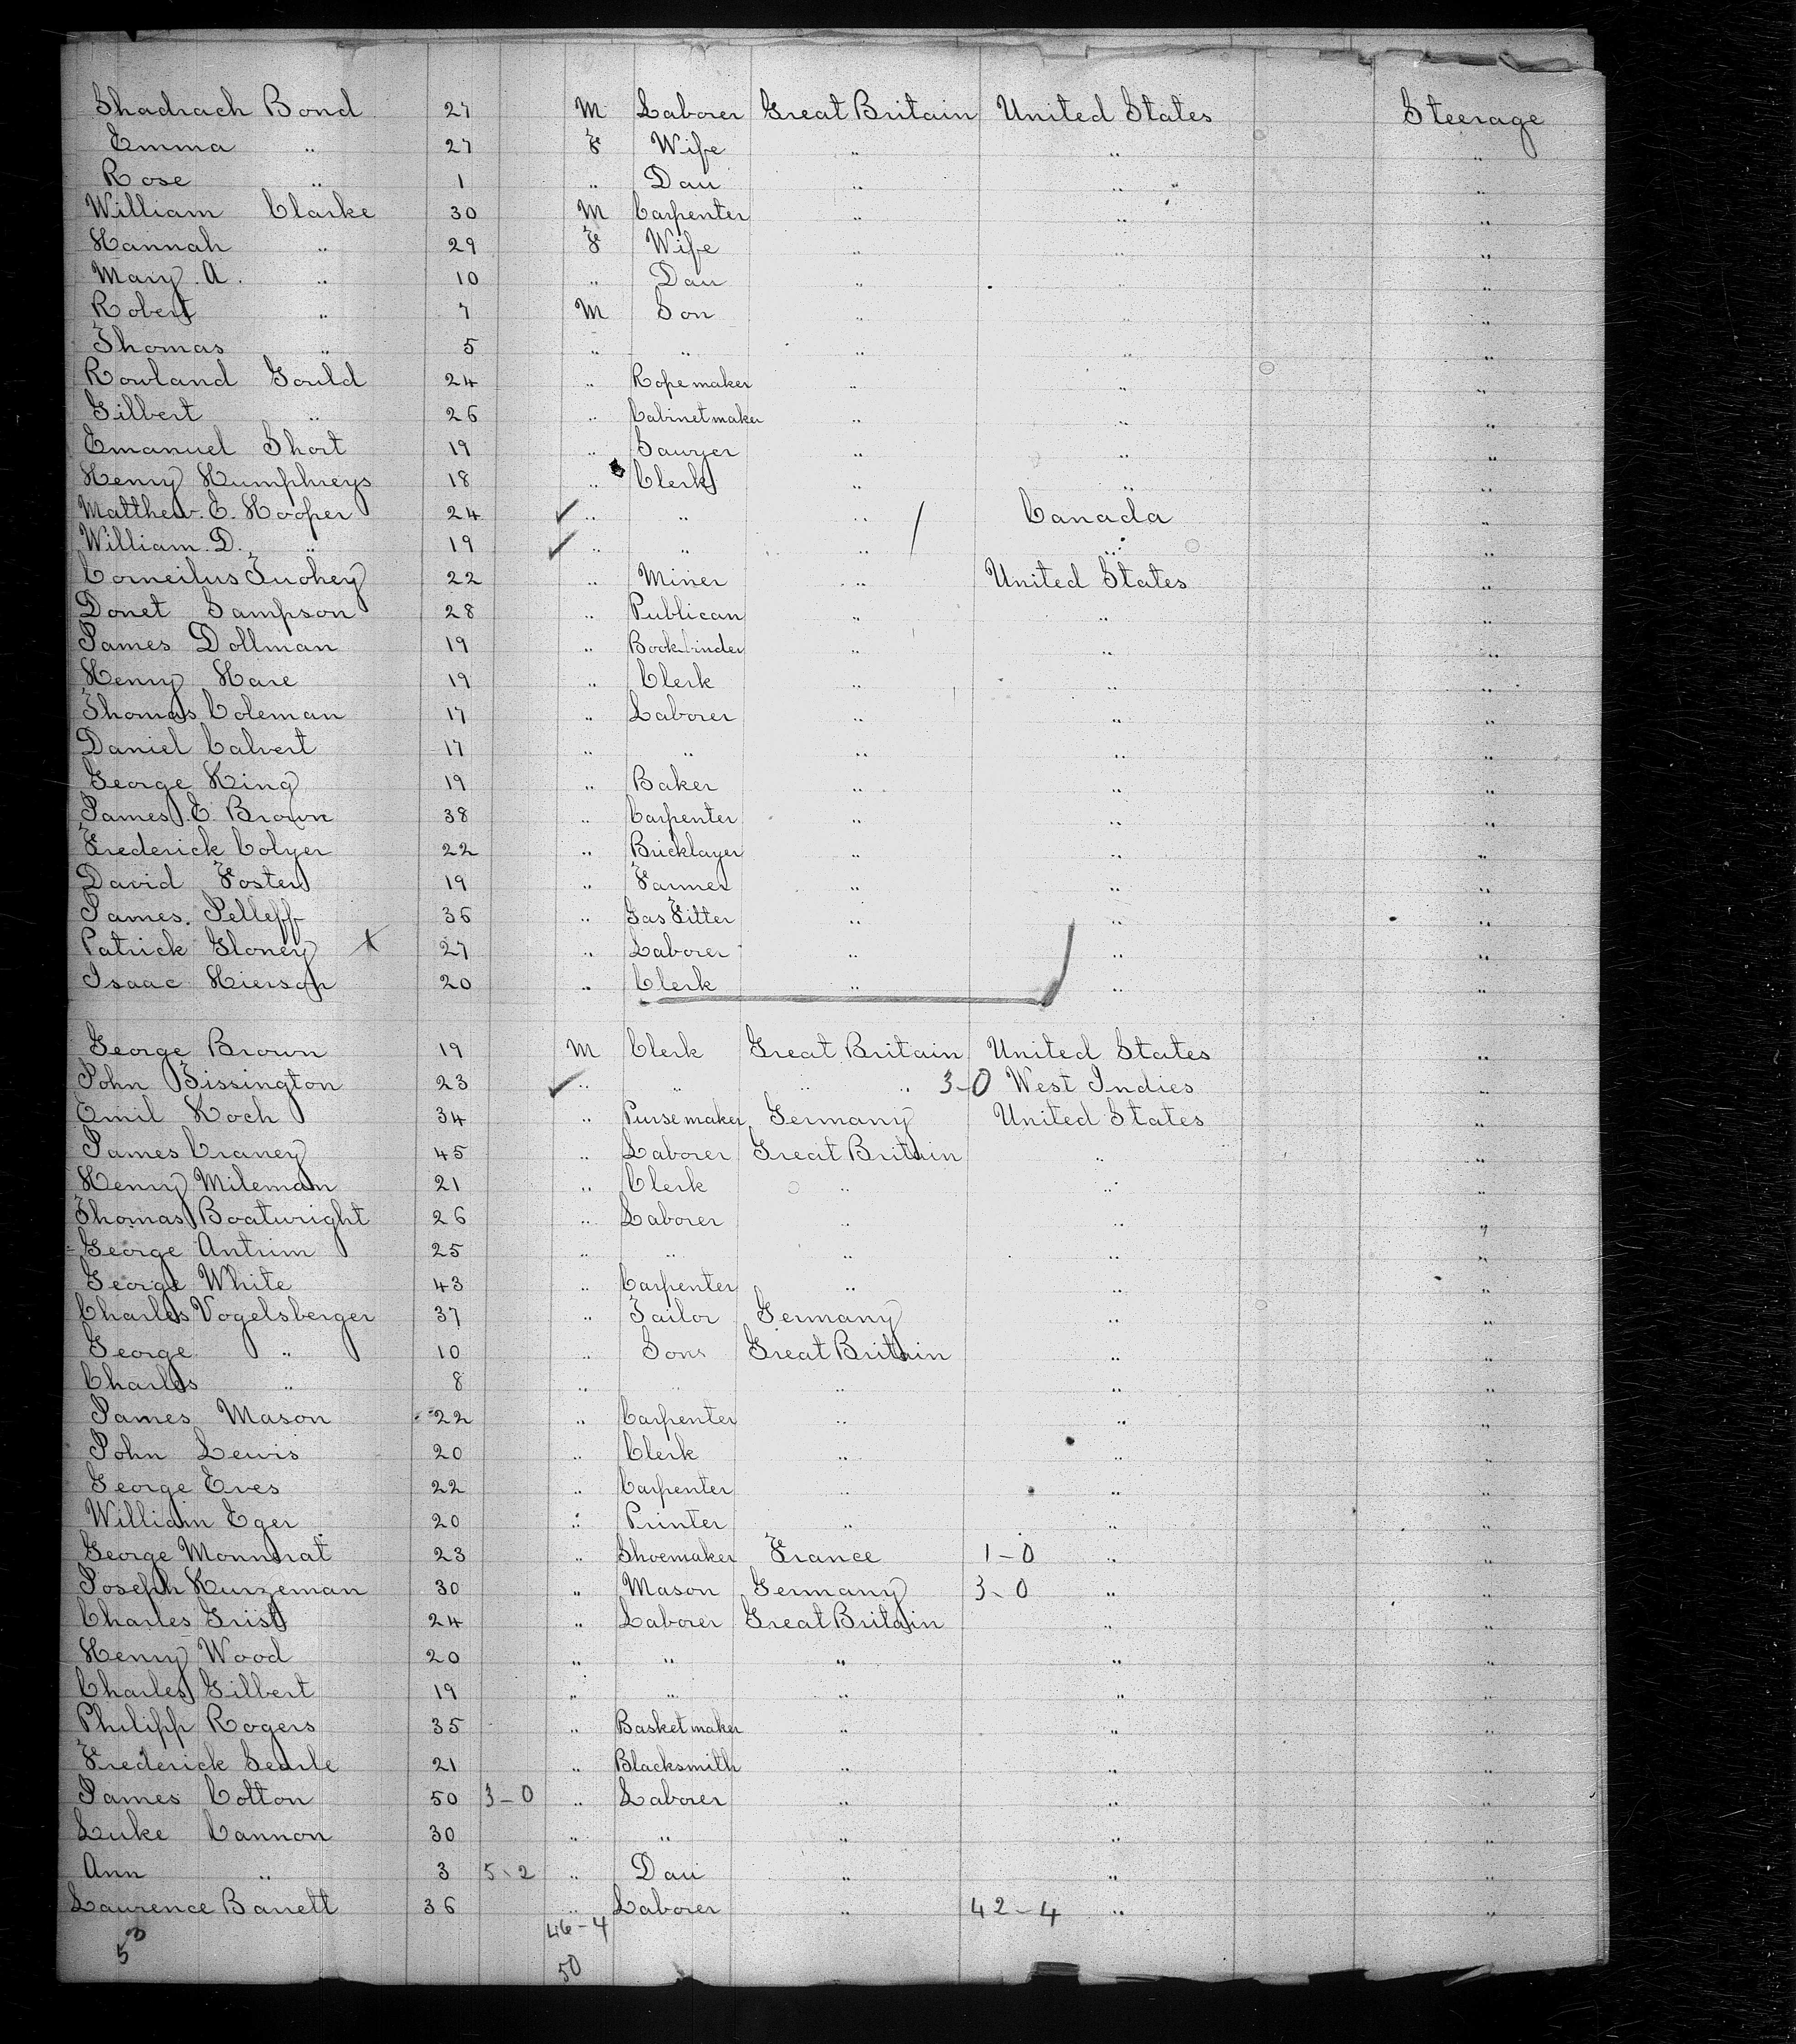 Shadrach Bond 27 M Laborer Great Britain United States Steerage
Emma " 27 F Wife " " "
Rose " 1 " Dau " " "
William Clarke 30 M Carpenter " " "
Hannah " 29 F Wife " " "
Mary A. " 10 " Dau " " "
Robert " 7 M Son " " "
Thomas " 5 " " " " "
Rowland Gould 24 " Rope maker " " "
Gilbert " 26 " Cabinet maker " " "
Emanuel Short 19 " Sawyer " " "
Henry Humphreys 18 " Clerk " " "
Matthew. E. Hooper 24 ✓ " " " / Canada "
William. D. " 19 ✓ " " " " "
Corneilus Tuohey 22 " Miner " United States "
Donet Sampson 28 " Publican " " "
James Dollman 19 " Bookbinder " " "
Henry Hare 19 " Clerk " " "
Thomas Coleman 17 " Laborer " " "
Daniel Calvert 17 " " " " "
George King 19 " Baker " " "
James. E. Brown 38 " Carpenter " " "
Frederick Colyer 22 " Bricklayer " " "
David Foster 19 " Farmer " " "
James. Pelleff 36 " Gas Fitter " " "
Patrick Gloney X 27 " Laborer " " "
Isaac Hierson 20 " Clerk " " "
George Brown 19 M Clerk Great Britain United States "
John Tissington 23 ✓ " " " 3-0 West Indies "
Emil Koch 34 " Purse maker Germany United States "
James Craney 45 " Laborer Great Britain " "
Henry Mileman 21 " Clerk " " "
Thomas Boatwright 26 " Laborer " " "
George Antrim 25 " " " " "
George White 43 " Carpenter " " "
Charles Vogelsberger 37 " Tailor Germany " "
George " 10 " Sons Great Britain " "
Charles " 8 " " " " "
James Mason 22 " Carpenter " " "
John Lewis 20 " Clerk " " "
George Eves 22 " Carpenter " " "
William Eger 20 " Printer " " "
George Monnrat 23 " Shoemaker France 1-0 " "
Joseph Kurzeman 30 " Mason Germany 3-0 " "
Charles Grist 24 " Laborer Great Britain " "
Henry Wood 20 " " " " "
Charles Gilbert 19 " " " " "
Philipp Rogers 35 " Basket maker " " "
Frederick Searle 21 " Blacksmith " " "
James Cotton 50 3-0 " Laborer " " "
Luke Cannon 30 " " " " "
Ann " 3 5-2 " Dau " " "
Laurence Barrett 36 " Laborer " 42-4 " "
46-4
50